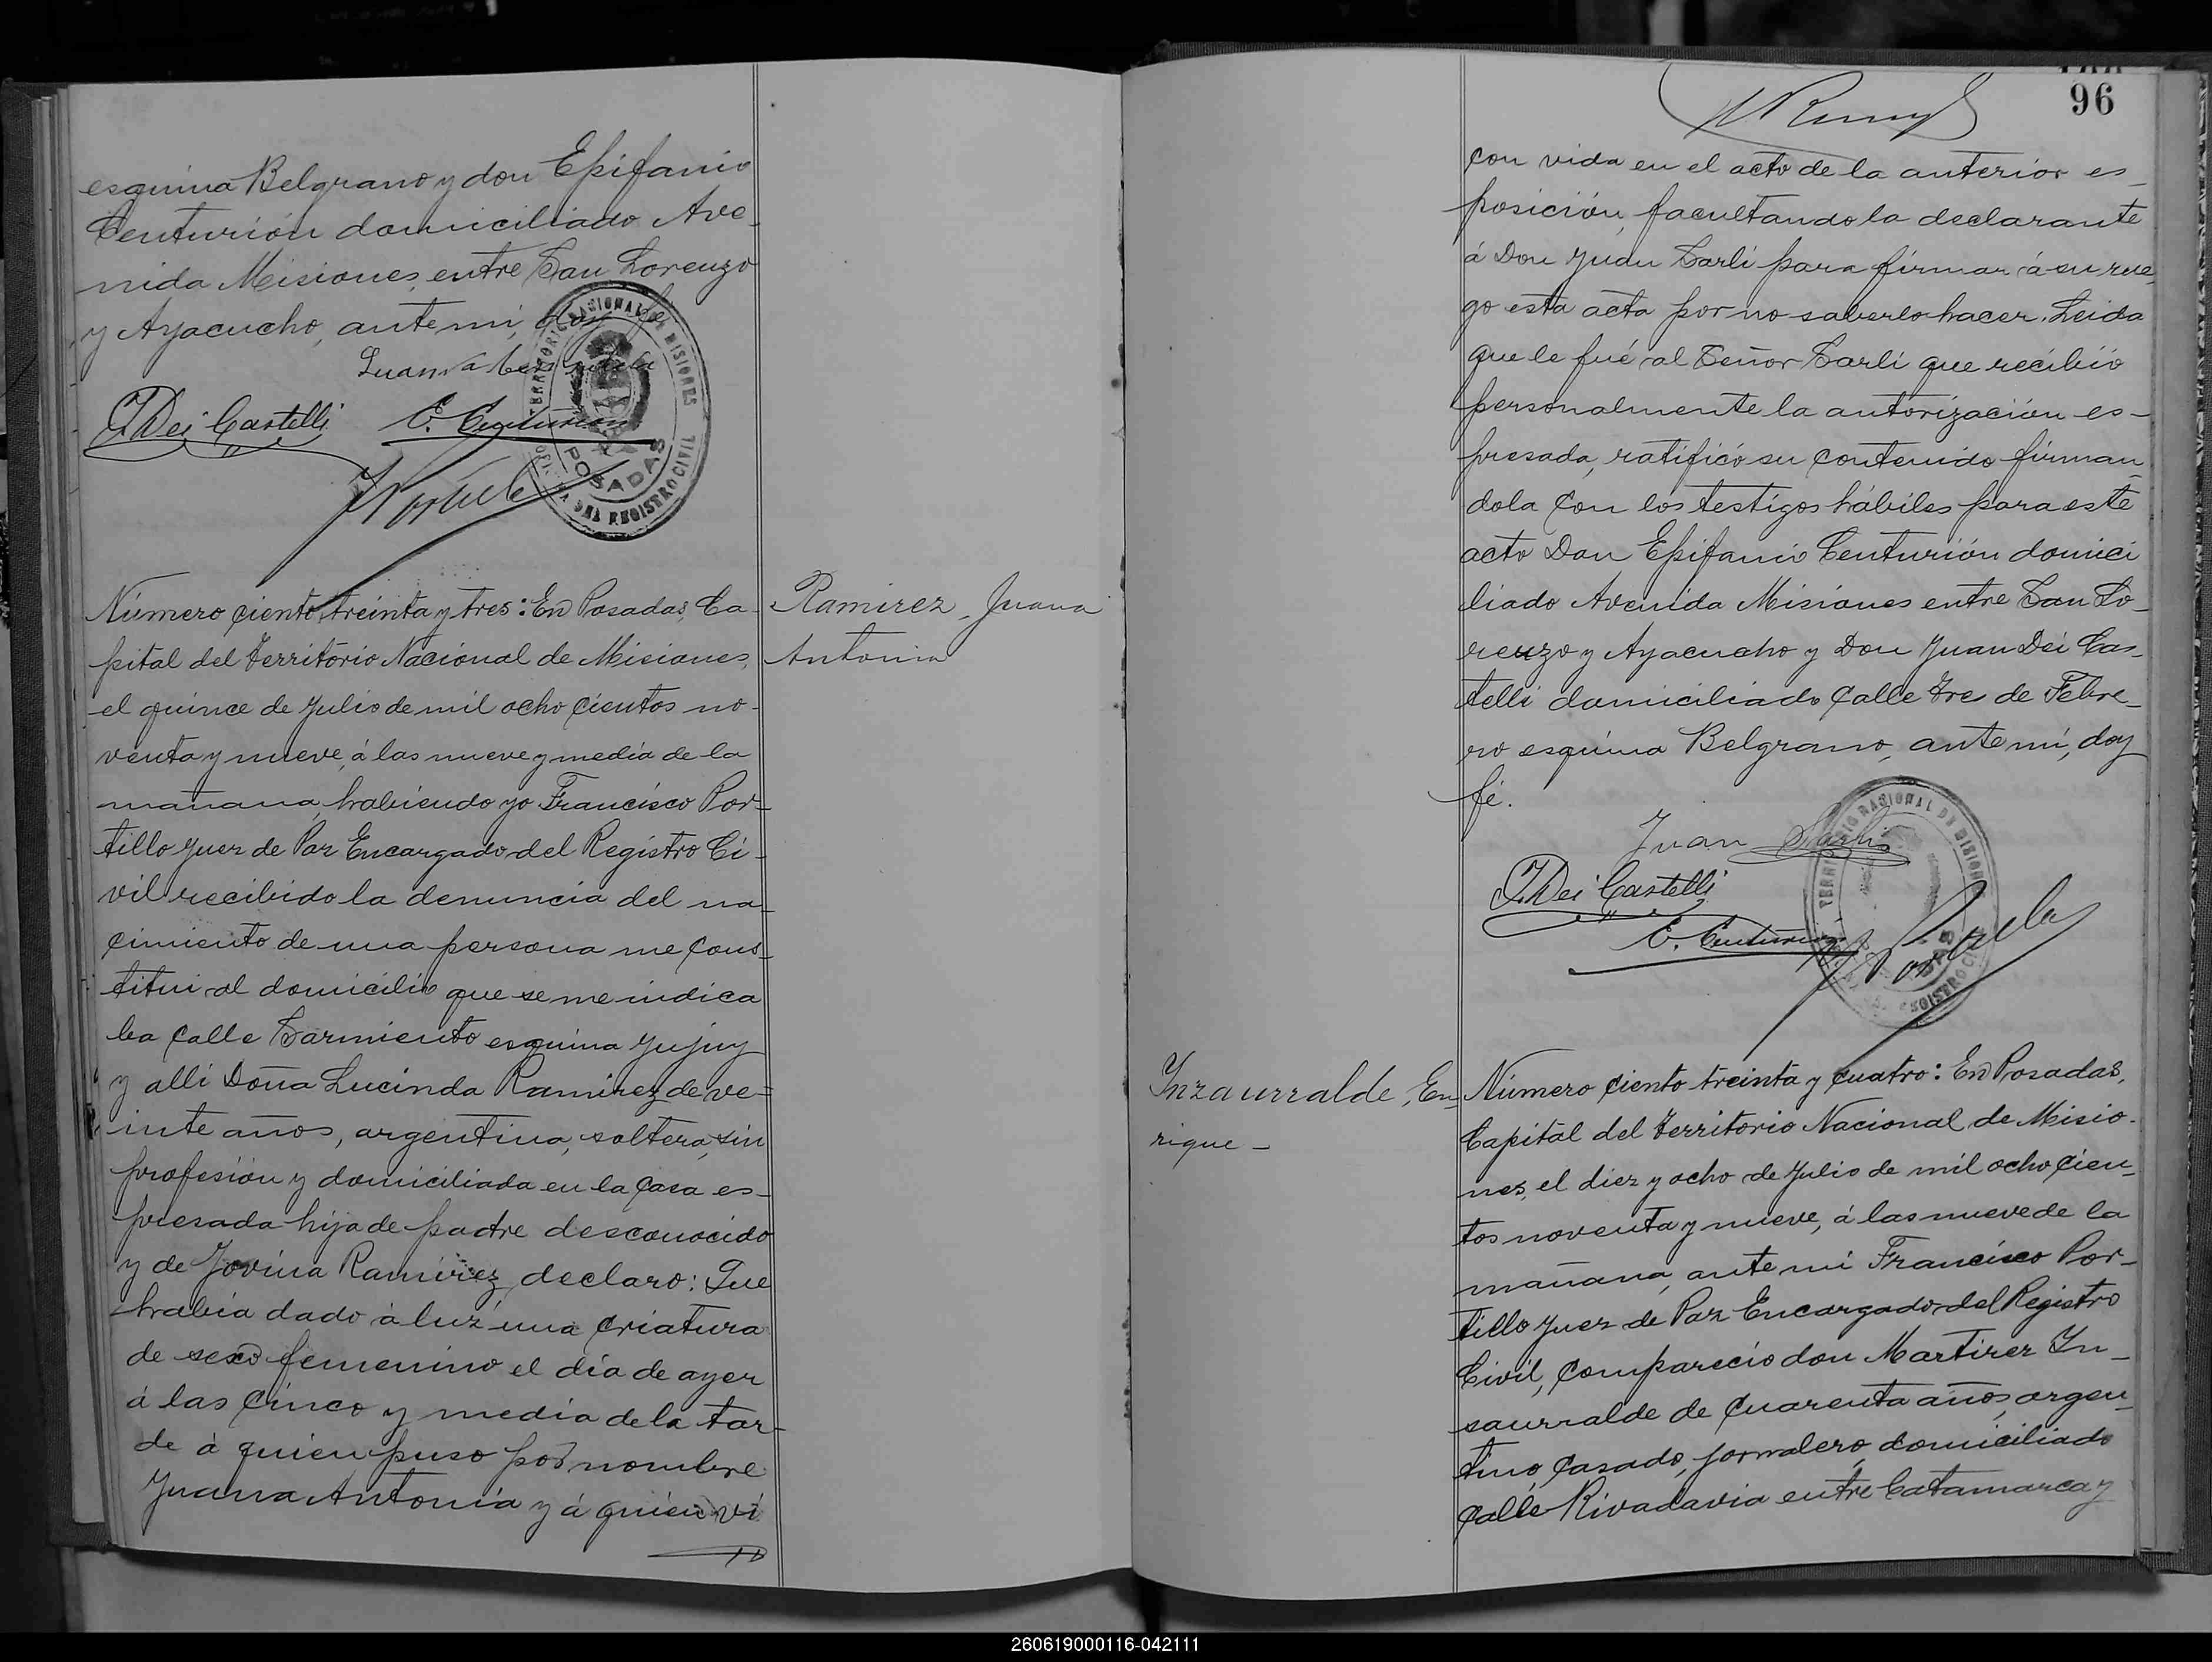 esquina Belgrano y don Epifanio
Centurión domiciliado Ave-
nida Misiones, entre San Lorenzo
y Ayacucho, ante mí, doy fe
J. Dei Castelli E. Centurión
TERRITORIO NASIONAL DE MISIONES
POSADAS
DEL REGISTRO CIVIL
Número ciento treinta y tres: En Posadas, Ca-
pital del Territorio Nacional de Misiones,
el quince de Julio de mil ocho cientos no-
venta y nueve, á las nueve y media de la
mañana, habiendo yo Francisco Por-
tillo Juez de Paz Encargado del Registro Ci-
vil recibido la denuncia del na-
cimiento de una persona me cons-
titui al domicilio que se me indica
ba calle Sarmiento esquina Jujuy
y alli Doña Lucinda Ramirez de ve-
inte años, argentina, soltera, sin
profesión y domiciliada en la casa es-
presada hija de padre desconocido
y de Jovina Ramirez, declaro: Que
habia dado á luz una criatura
de sexo femenino el día de ayer
á las cinco y media de la tar-
de á quien puso por nombre
Juana Antonia y á quien vi
Ramirez, Juana
Antonia
96
con vida en el acto de la anterior es-
posición, facultando la declarante
á Don Juan Sarli para firmar á su rue-
go esta acta por no saberlo hacer. Leida
que le fué al Señor Sarli que recibió
personalmente la autorización es-
presada, ratificó su contenido firman
dola con los testigos hábiles para este
acto Don Epifanio Centurión domici
liado Avenida Misiones entre San Lo-
renzo y Ayacucho y Don Juan Dei Cas-
telli domiciliado calle Tres de Febre-
ro esquina Belgrano, ante mí, doy
fé.
Juan Sarli
J. Dei Castelli
E. Centurión
TERRITORIO NASIONAL DE MISIONES
REGISTRO CIVIL
Inzaurralde, En-
rique -
Número ciento treinta y cuatro: En Posadas,
Capital del Territorio Nacional de Misio-
nes, el diez y ocho de Julio de mil ocho cien-
tos noventa y nueve, á las nueve de la
mañana, ante mi Francisco Por-
tillo Juez de Paz Encargado del Registro
Civil, compareció don Martirez In-
saurralde de cuarenta años, argen-
tino, casado, jornalero, domiciliado
calle Rivadavia entre Catamarca y
260619000116-042111